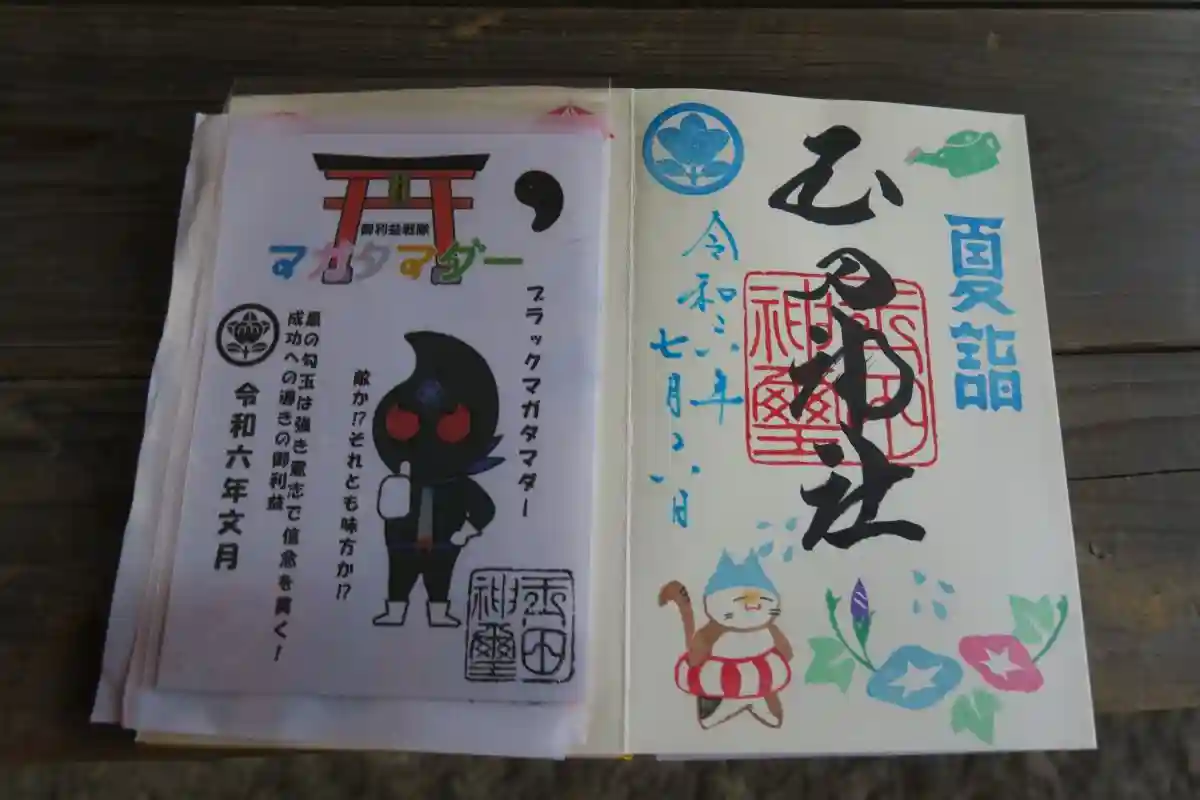 御利益戦隊
マガタマダー
ブラックマガタマダー
敵か!?それとも味方か!?
黒の勾玉は強き意志で信念を貫く!
成功への導きの御利益
令和六年文月
玉田
神璽
夏詣
玉田神社
玉田
神璽
令和六年
七月六日